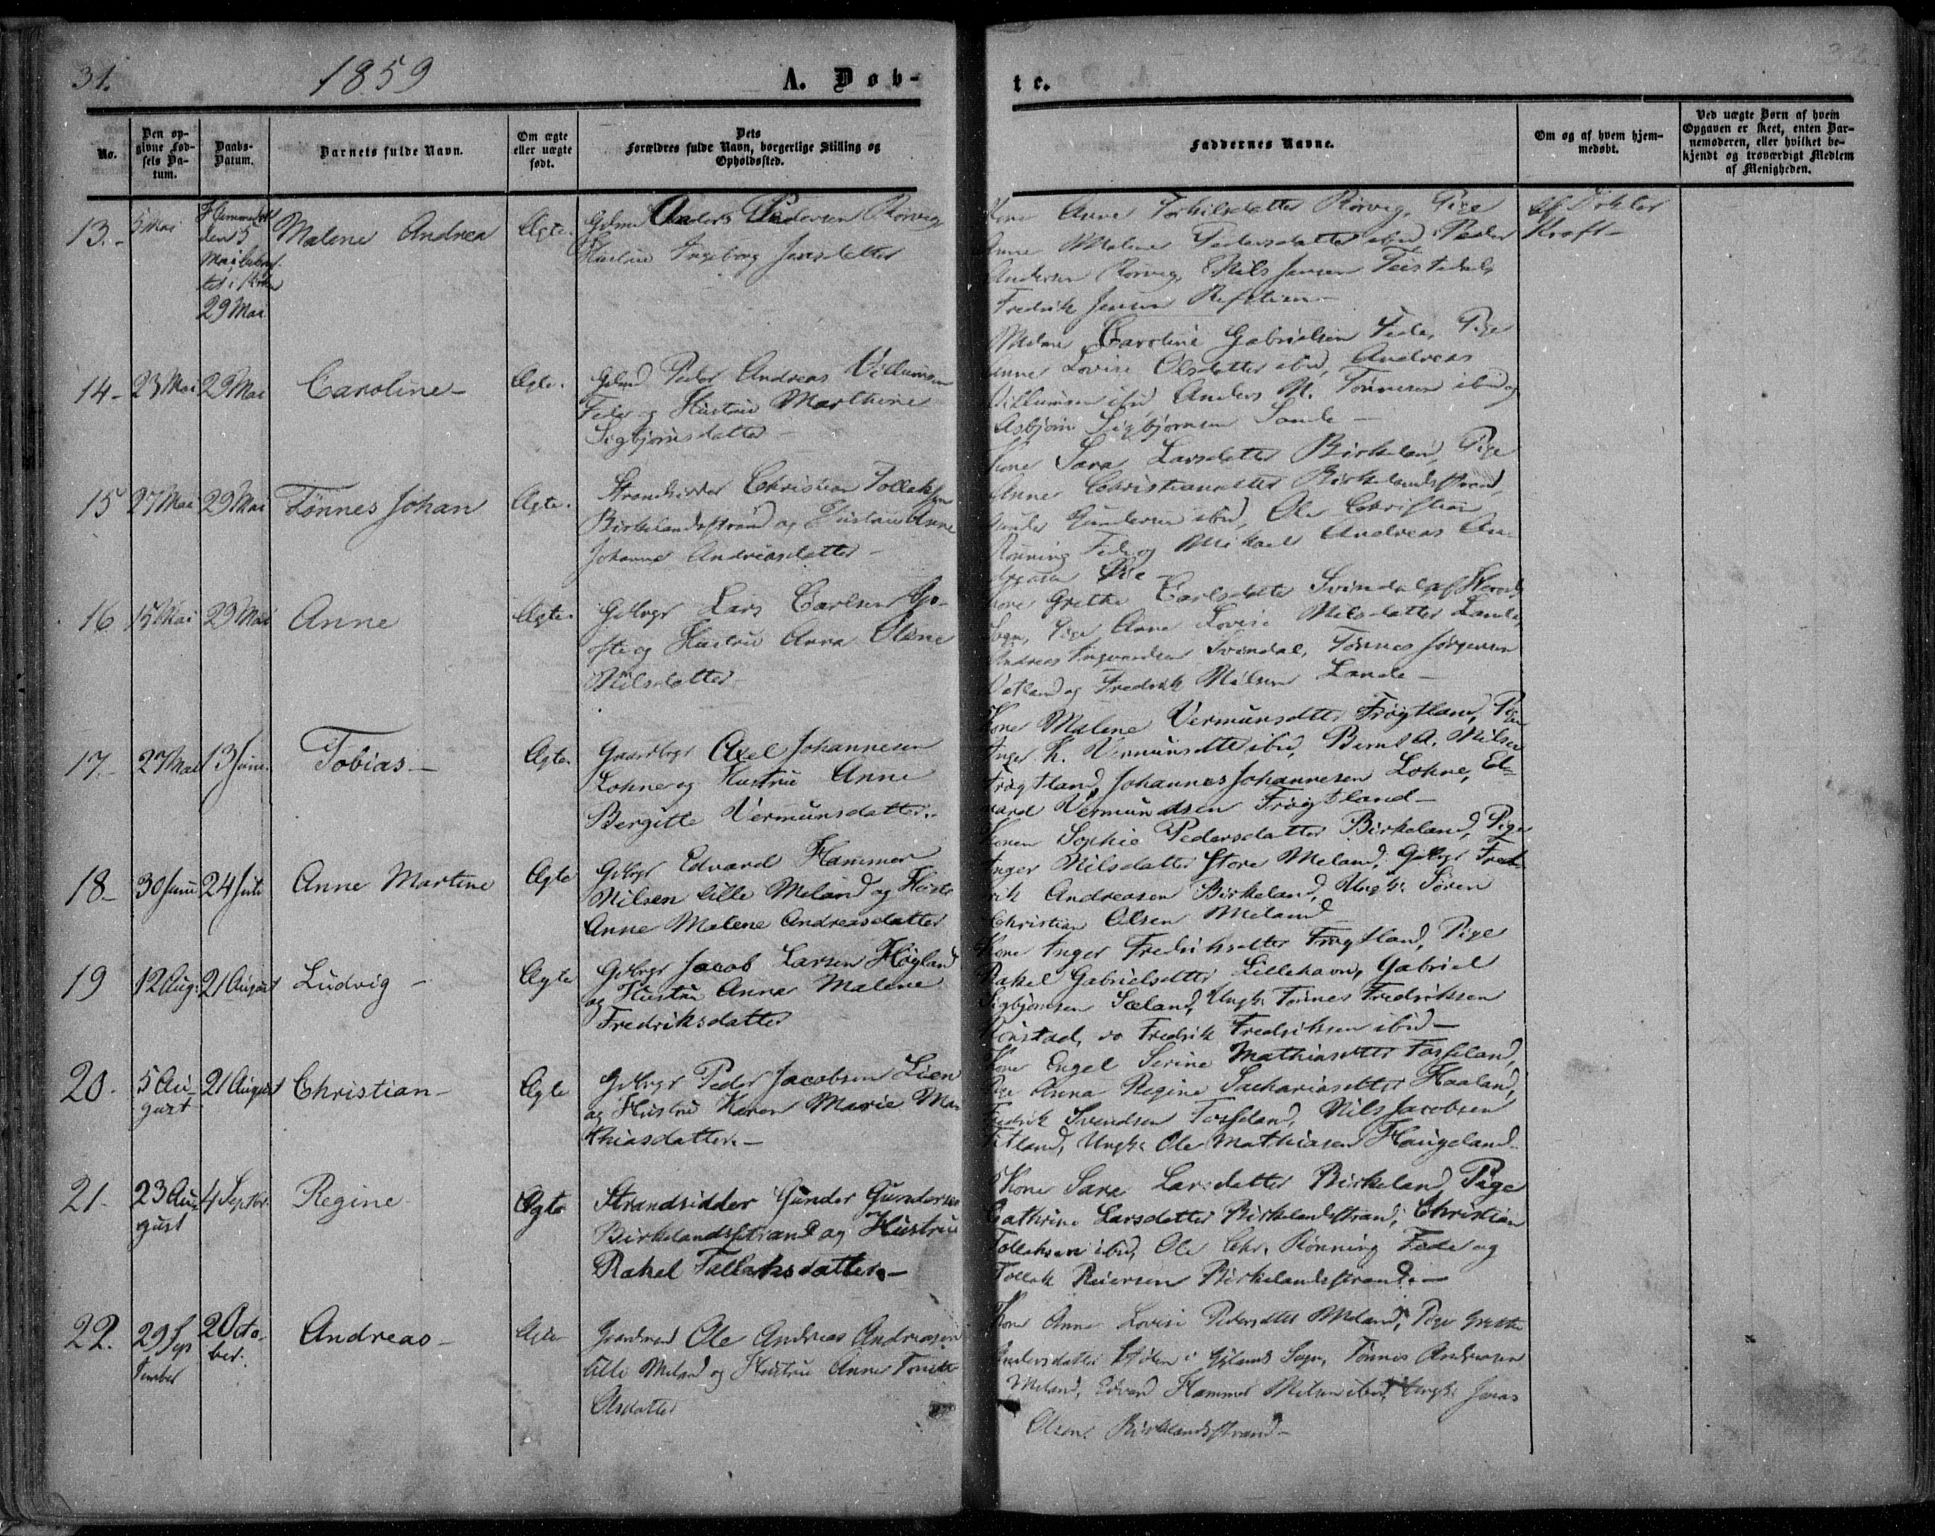 31.
1859
A. Døb-
te.
No.
Den op-
givne Fød-
sels Da-
tum.
Daabs-
Datum.
Barnets fulde Navn.
Om ægte
eller uægte
født.
Dets
Forældres fulde Navn, borgerlige Stilling og
Opholdssted.
Faddernes Navne.
Om og af hvem hjem-
medøbt.
Ved uægte Børn af hvem
Opgaven er skeet, enten Bar-
nemoderen, eller hvilket be-
kjendt og troværdigt Medlem
af Menigheden.
13.-
5 Mai
Hjemmedøbt
den 5
Mai
i Kirken
29 Mai
Malene Andrea
Ægte.
Anders Pedersen Rørvig
Hustru Ingeborg Jensdatter
Kone Anne Torkilsdatter Rørvig, Pige
Anne Malene Pedersdatter ibid, Peder
Andersen Rørvig, Nils Jensen Feistedal,
Fredrik Jensen
af Doktor
Kraft-
14-
23 Mai
29 Mai
Caroline-
Ægte.
Peder Andreas Villumsen
Fede og Hustru Marthine
Sigbjørnsdatter-
Caroline Gabrielsen Fede, Pige
Anne Lovise Olsdatter ibid, Andreas
Villumsen ibid Anders N. Tønnesen ibid og
Asbjørn Sigbjørnsen Sande-
15
27 Mai
29 Mai
Tønnes Johan
Ægte.
Strandsidder Christian Tollaksen
Birkelandsstrand og Hustru Anne
Johanne Andreasdatter-
Kone Sara Larsdatter Birkeland, Pige
Anne Christiansdatter Birkelandsstrand,
Gunder Gundersen ibid, Ole Christian
Rønning Fede og Mikael Andreas An-
16
15 Mai
29 Mai
Anne
Ægte.
Gdbrgr Lars Carlsen
og Hustru Anna Olene
Nilsdatter
Kone Grethe Carlsdatter Svindal af
Sogn, Pige Anne Lovise Nilsdatter Lande,
Andreas Ingvardsen Svindal, Tønnes Jørgensen
Vatland og Fredrik Nilsen Lande-
17.-
27 Mai
13 Juni.
Tobias-
Ægte.
Gaardbrgr Axel Johannesen
Lohne og Hustru Anne
Bergitte Vermunsdatter.
Kone Malene Vermunsdtter Frøytland, Pige
Inger K. Vermunsdtte ibid, Bernt A. Nilsen
Frøytland, Johannes Johannesen Lohne, Ed-
vard Vermundsen Frøytland-
18-
30 Juni
24 Juli
Anne Martine
Ægte
Gdbrgr Edvard Hammer
Nilsen lille Meland og Hustr
Anne Malene Andreasdatter
Konen Sophie Pedersdatter Birkeland, Pige
Inger Nilsdatter store Meland, Gdbrgr Fred-
rik Andreasen Birkeland, Ungk: Søren
Christian Olsen Meland-
19
12 Aug:
21 August
Ludvig-
Ægte
Gdbrgr Jacob Larsen Høyland
og Hustru Anna Malene
Fredriksdatter
Kone Inger Fredriksdtter Frøytland, Pige
Rakel Gabrielsdtter Lillehavn, Gabriel
Sigbjørnsen Sæland, Ungk: Tønnes Fredriksen
do Fredrik Fredriksen ibid-
20.
5 Au-
gust
21 August
Christian-
Ægte
Gdbrgr Peder Jacobsen Lien
og Hustru Karen Marie Ma-
thiasdatter.-
Kone Engel Serine Mathiasdtter Fosseland,
Pige Anna Regine Sachariasdtter Haaland,
Fredrik Svendsen Fosseland, Nils Jacobsen
Ungk: Ole Mathiasen Haugeland-
21.
23 Au-
gust
4 Septbr.
Regine
Ægte
Strandsidder Gunder Gundersen
Birkelandsstrand og Hustru
Rakel Tallaksdatter.-
Kone Sara Larsdatter Birkeland, Pige
Cathrine Larsdatter Birkelandsstrand, Christian
Tollaksen ibid, Ole Chr. Rønning Fede og
Tollak Reiersen Birkelandsstrand.-
22.
29 Sep
tember
2 Octo-
ber.
Andreas-
Ægte
Gaardmand Ole Andreas Andreasen
lille Meland og Hustru Anne Tonette
Olsdatter
Kone Anne Lovise Pedersdtter Meland, Pige Grethe
i Gylands Sogn, Tønnes Andreasen
Meland, Edvard Hammer Nilsen ibid, Ungk: Jonas
Olsen Birkelandsstrand-